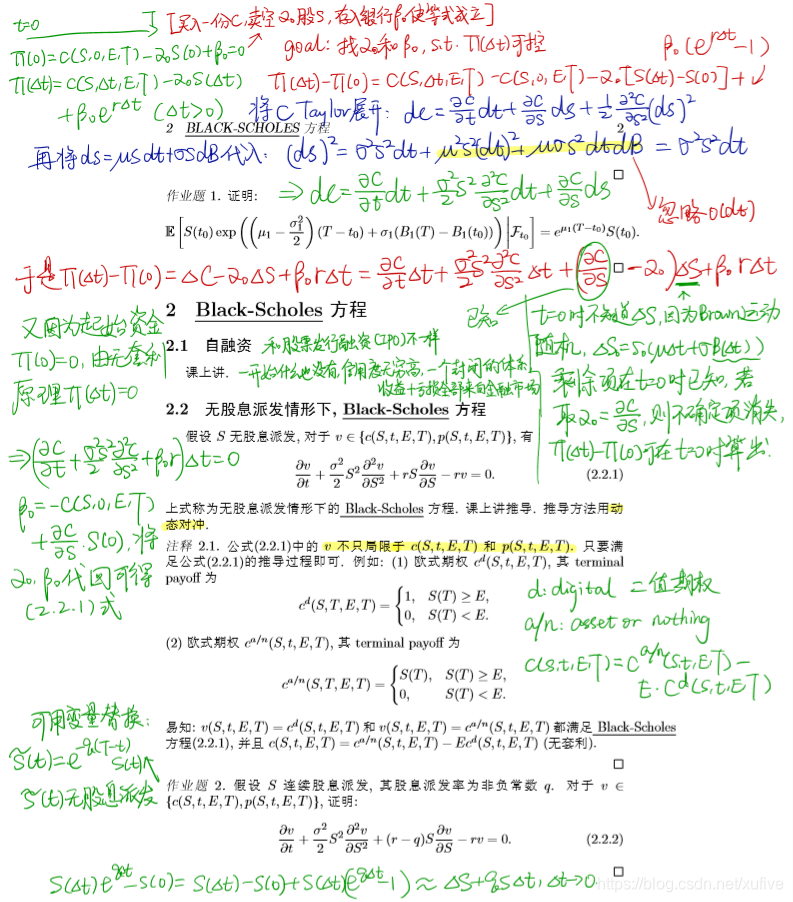 t=0 [买入一份C,卖空α₀股S,存入银行β₀使等式成立]
Π(0)=C(S,0,E,T)-α₀S(0)+β₀=0
goal: 找α₀和β₀, s.t. Π(Δt)可控
β₀(e^{rΔt}-1)
Π(Δt)=C(S,Δt,E,T)-α₀S(Δt)
+β₀e^{rΔt} (Δt>0)
Π(Δt)-Π(0)=C(S,Δt,E,T)-C(S,0,E,T)-α₀[S(Δt)-S(0)]+↙
将C Taylor展开: dc=∂C/∂t dt+∂C/∂S ds+1/2 ∂²C/∂S² (ds)²
2 BLACK-SCHOLES 方程 2
再将ds=μsdt+σsdB代入: (ds)²=σ²s²dt+μ²s²(dt)²+μσs²dtdB=σ²s²dt
□
作业题 1. 证明:
⇒dc=∂C/∂t dt+σ²/2 s² ∂²C/∂S² dt+∂C/∂S ds
忽略o(dt)
𝔼[S(t₀) exp((μ₁ − σ₁²/2)(T − t₀) + σ₁(B₁(T) − B₁(t₀)))|ℱ_{t₀}] = e^{μ₁(T−t₀)}S(t₀).
于是Π(Δt)-Π(0)=ΔC-α₀ΔS+β₀rΔt=∂C/∂t Δt+σ²/2 S² ∂²C/∂S² Δt+(∂C/∂S-α₀)ΔS+β₀rΔt
□
2 Black-Scholes 方程
又因为起始资金
Π(0)=0,由无套利
原理Π(Δt)=0
已知
t=0时不知道ΔS,因为Brown运动
随机,ΔS₀=S₀(μΔt+σB(Δt))
剩余项在t=0时已知,若
取α₀=∂C/∂S,则不确定项消失,
Π(Δt)-Π(0)可在t=0时算出.
2.1 自融资 和股票发行融资(IPO)不一样
课上讲. 一开始什么也没有,信用度无穷高,一个封闭的体系,
收益+亏损全部来自金融市场
2.2 无股息派发情形下, Black-Scholes 方程
假设 S 无股息派发, 对于 v ∈ {c(S, t, E, T), p(S, t, E, T)}, 有
⇒(∂C/∂t+σ²/2 S² ∂²C/∂S²+β₀r)Δt=0
∂v/∂t + σ²/2 S² ∂²v/∂S² + rS ∂v/∂S − rv = 0. (2.2.1)
β₀=-C(S,0,E,T)
+∂C/∂S·S(0),将
α₀,β₀代回可得
(2.2.1)式
上式称为无股息派发情形下的 Black-Scholes 方程. 课上讲推导. 推导方法用动
态对冲.
注释 2.1. 公式(2.2.1)中的 v 不只局限于 c(S, t, E, T) 和 p(S, t, E, T). 只要满
足公式(2.2.1)的推导过程即可. 例如: (1) 欧式期权 c^d(S, t, E, T), 其 terminal
payoff 为
c^d(S, T, E, T) = {1, S(T) ≥ E,
0, S(T) < E.
d: digital 二值期权
a/n: asset or nothing
(2) 欧式期权 c^{a/n}(S, t, E, T), 其 terminal payoff 为
C(S,t,E,T)=C^{a/n}(S,t,E,T)-
E·C^d(S,t,E,T)
c^{a/n}(S, T, E, T) = {S(T), S(T) ≥ E,
0, S(T) < E.
可用变量替换:
S̃(t)=e^{-q(T-t)}S(t)
S̃(t)无股息派发
易知: v(S, t, E, T) = c^d(S, t, E, T) 和 v(S, t, E, T) = c^{a/n}(S, t, E, T) 都满足 Black-Scholes
方程(2.2.1), 并且 c(S, t, E, T) = c^{a/n}(S, t, E, T) − Ec^d(S, t, E, T) (无套利).
□
作业题 2. 假设 S 连续股息派发, 其股息派发率为非负常数 q. 对于 v ∈
{c(S, t, E, T), p(S, t, E, T)}, 证明:
∂v/∂t + σ²/2 S² ∂²v/∂S² + (r − q)S ∂v/∂S − rv = 0. (2.2.2)
□
S(Δt)e^{qΔt}-S(0)=S(Δt)-S(0)+S(Δt)(e^{qΔt}-1)≈ΔS+qSΔt,Δt→0
https://blog.csdn.net/xufive